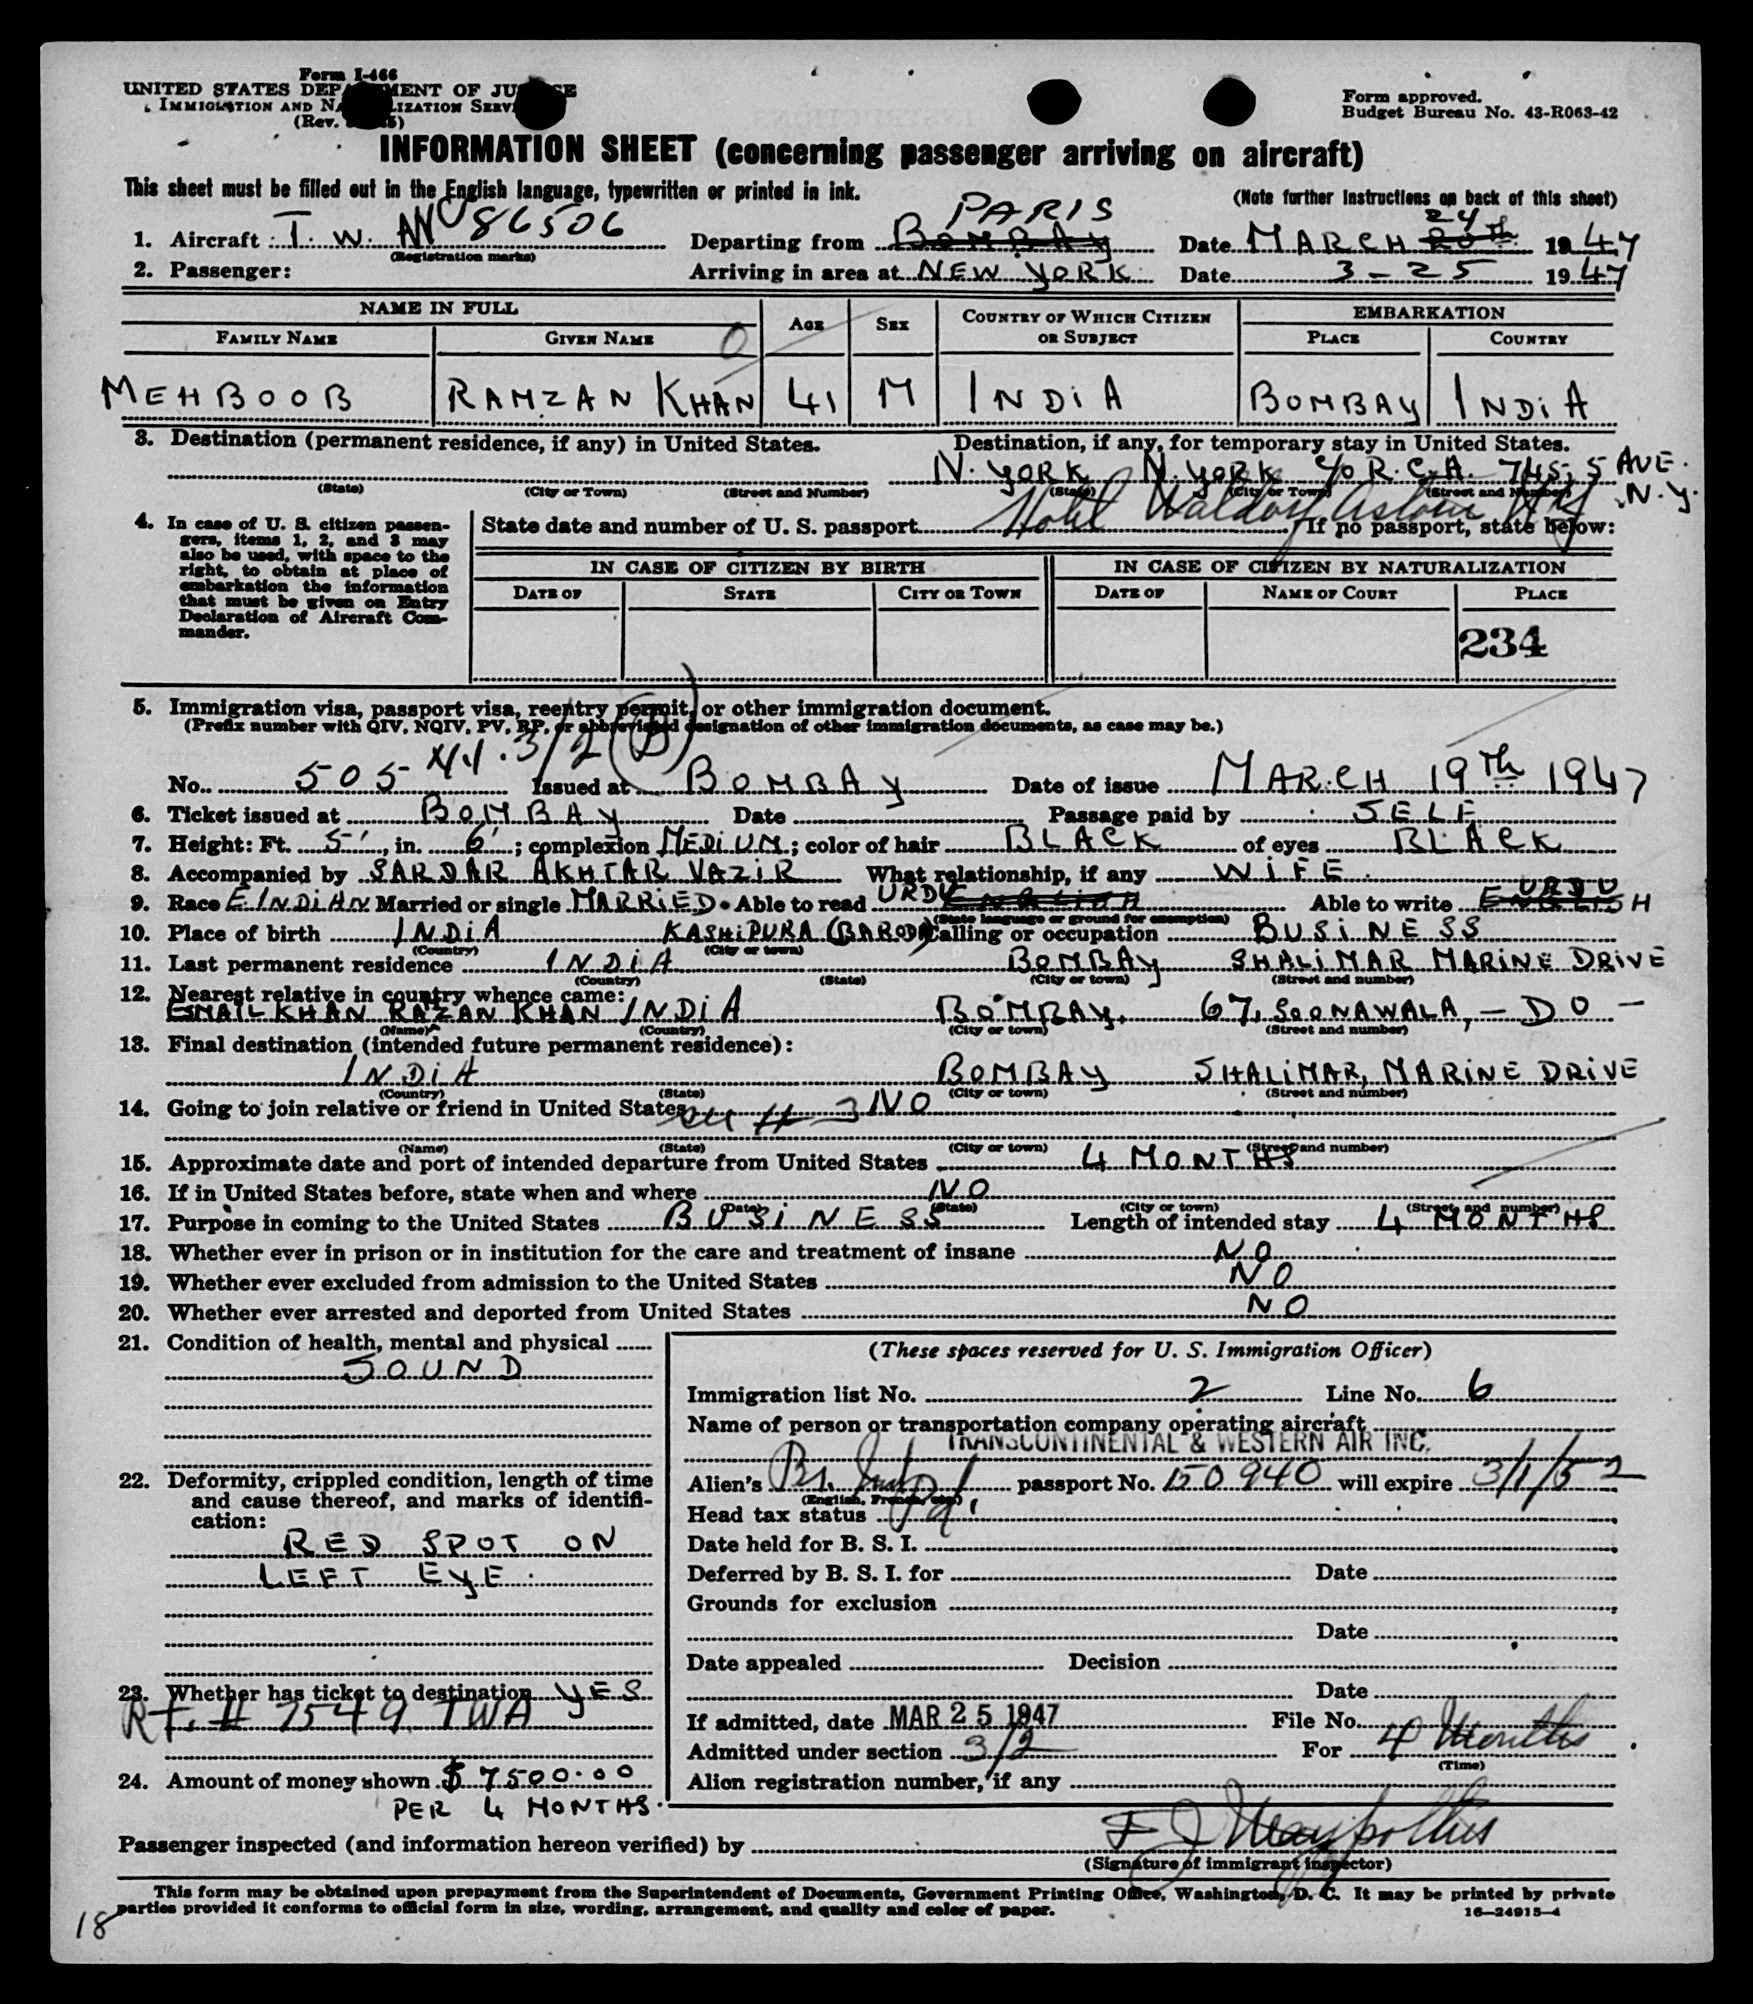 Form I-466
UNITED STATES DEPARTMENT OF JUSTICE
IMMIGRATION AND NATURALIZATION SERVICE
(Rev.
Form approved.
Budget Bureau No. 43-R063-42
INFORMATION SHEET (concerning passenger arriving on aircraft)
This sheet must be filled out in the English language, typewritten or printed in ink. (Note further instructions on back of this sheet)
1. Aircraft T. W. A NC 86506 (Registration marks) Departing from BOMBAY PARIS Date MARCH 20th 24 1947
2. Passenger: Arriving in area at NEW YORK Date 3-25 1947
NAME IN FULL AGE SEX COUNTRY OF WHICH CITIZEN OR SUBJECT EMBARKATION
FAMILY NAME GIVEN NAME PLACE COUNTRY
MEHBOOB RAMZAN KHAN 41 M INDIA BOMBAY INDIA
3. Destination (permanent residence, if any) in United States. Destination, if any, for temporary stay in United States.
N. YORK N. YORK c/o R.C.A. 745, 5 AVE. N.Y.
(State) (City or Town) (Street and Number) (State) (City or Town) (Street and Number)
Hotel Waldorf Astoria NY
4. In case of U. S. citizen passengers, items 1, 2, and 3 may also be used, with space to the right, to obtain at place of embarkation the information that must be given on Entry Declaration of Aircraft Commander.
State date and number of U. S. passport If no passport, state below:
IN CASE OF CITIZEN BY BIRTH IN CASE OF CITIZEN BY NATURALIZATION
DATE OF STATE CITY OR TOWN DATE OF NAME OF COURT PLACE
234
5. Immigration visa, passport visa, reentry permit, or other immigration document.
(Prefix number with QIV, NQIV, PV, RP, or abbreviated designation of other immigration documents, as case may be.)
3/2 (B)
No. 505 Issued at BOMBAY Date of issue MARCH 19th 1947
6. Ticket issued at BOMBAY Date Passage paid by SELF
7. Height: Ft. 5', in. 6"; complexion MEDIUM; color of hair BLACK of eyes BLACK
8. Accompanied by SARDAR AKHTAR VAZIR What relationship, if any WIFE
9. Race E INDIAN Married or single MARRIED Able to read URDU ENGLISH Able to write URDU ENGLISH
(State language or ground for exemption)
10. Place of birth INDIA KASHIPURA (BARODA) Calling or occupation BUSINESS
(Country) (City or town)
11. Last permanent residence INDIA BOMBAY SHALIMAR MARINE DRIVE
(Country) (State) (City or town) (Street and number)
12. Nearest relative in country whence came:
ESMAIL KHAN RAZAN KHAN INDIA BOMBAY, 67, SOONAWALA, - DO -
(Name) (Country) (City or town) (Street and number)
13. Final destination (intended future permanent residence):
INDIA BOMBAY SHALIMAR, MARINE DRIVE
(Country) (State) (City or town) (Street and number)
14. Going to join relative or friend in United States # 3 NO
(Name) (State) (City or town) (Street and number)
15. Approximate date and port of intended departure from United States 4 MONTHS
16. If in United States before, state when and where NO
(Date) (State) (City or town) (Street and number)
17. Purpose in coming to the United States BUSINESS Length of intended stay 4 MONTHS
18. Whether ever in prison or in institution for the care and treatment of insane NO
19. Whether ever excluded from admission to the United States NO
20. Whether ever arrested and deported from United States NO
21. Condition of health, mental and physical
SOUND
22. Deformity, crippled condition, length of time
and cause thereof, and marks of identifi-
cation:
RED SPOT ON
LEFT EYE.
23. Whether has ticket to destination YES
RT. # 7549 TWA
24. Amount of money shown $ 7500.00
PER 4 MONTHS.
(These spaces reserved for U. S. Immigration Officer)
Immigration list No. 2 Line No. 6
Name of person or transportation company operating aircraft
TRANSCONTINENTAL & WESTERN AIR INC.
Alien's Br. passport No. 150940 will expire 3/1/52
(English, French, etc.)
Head tax status
Date held for B. S. I.
Deferred by B. S. I. for Date
Grounds for exclusion
Date
Date appealed Decision
Date
If admitted, date MAR 25 1947 File No.
Admitted under section 3/2 For 4 Months
(Time)
Alien registration number, if any
Passenger inspected (and information hereon verified) by
(Signature of immigrant inspector)
This form may be obtained upon prepayment from the Superintendent of Documents, Government Printing Office, Washington, D. C. It may be printed by private
parties provided it conforms to official form in size, wording, arrangement, and quality and color of paper.
16—24915-4
18